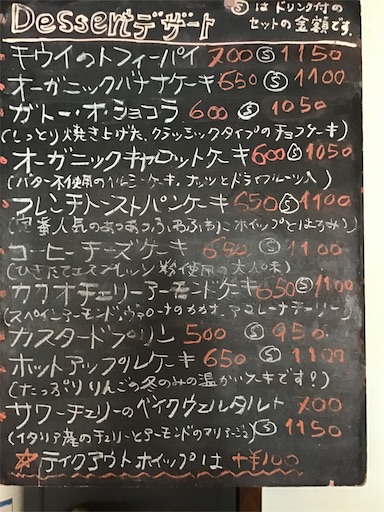 Dessert デザート
Ⓢはドリンク付の
セットの金額です。
キウイのトフィーパイ 700 Ⓢ 1150
オーガニックバナナケーキ 650 Ⓢ 1100
ガトー・オ・ショコラ 600 Ⓢ 1050
(しっとり焼き上げた、クラッシックタイプのチョコケーキ)
オーガニックキャロットケーキ 600 Ⓢ 1050
(バター不使用のヘルシーケーキ。ナッツとドライフルーツ入)
フレンチトーストパンケーキ 650 Ⓢ 1100
(定番人気のあつあつふわふわ ホイップとはちみつ)
コーヒーチーズケーキ 650 Ⓢ 1100
(ひきたてエスプレッソ粉使用の大人味)
カカオチェリーアーモンドケーキ 650 Ⓢ 1100
(スペインアーモンド、ヴァローナのカカオ、アマレーナチェリー)
カスタードプリン 500 Ⓢ 950
ホットアップルケーキ 650 Ⓢ 1100
(たっぷりりんごの冬のみの温かいケーキです!)
サワーチェリーのベイクウェルタルト 700
(イタリア産のチェリーとアーモンドのマリアージュ) Ⓢ 1150
☆テイクアウトホイップは +¥100